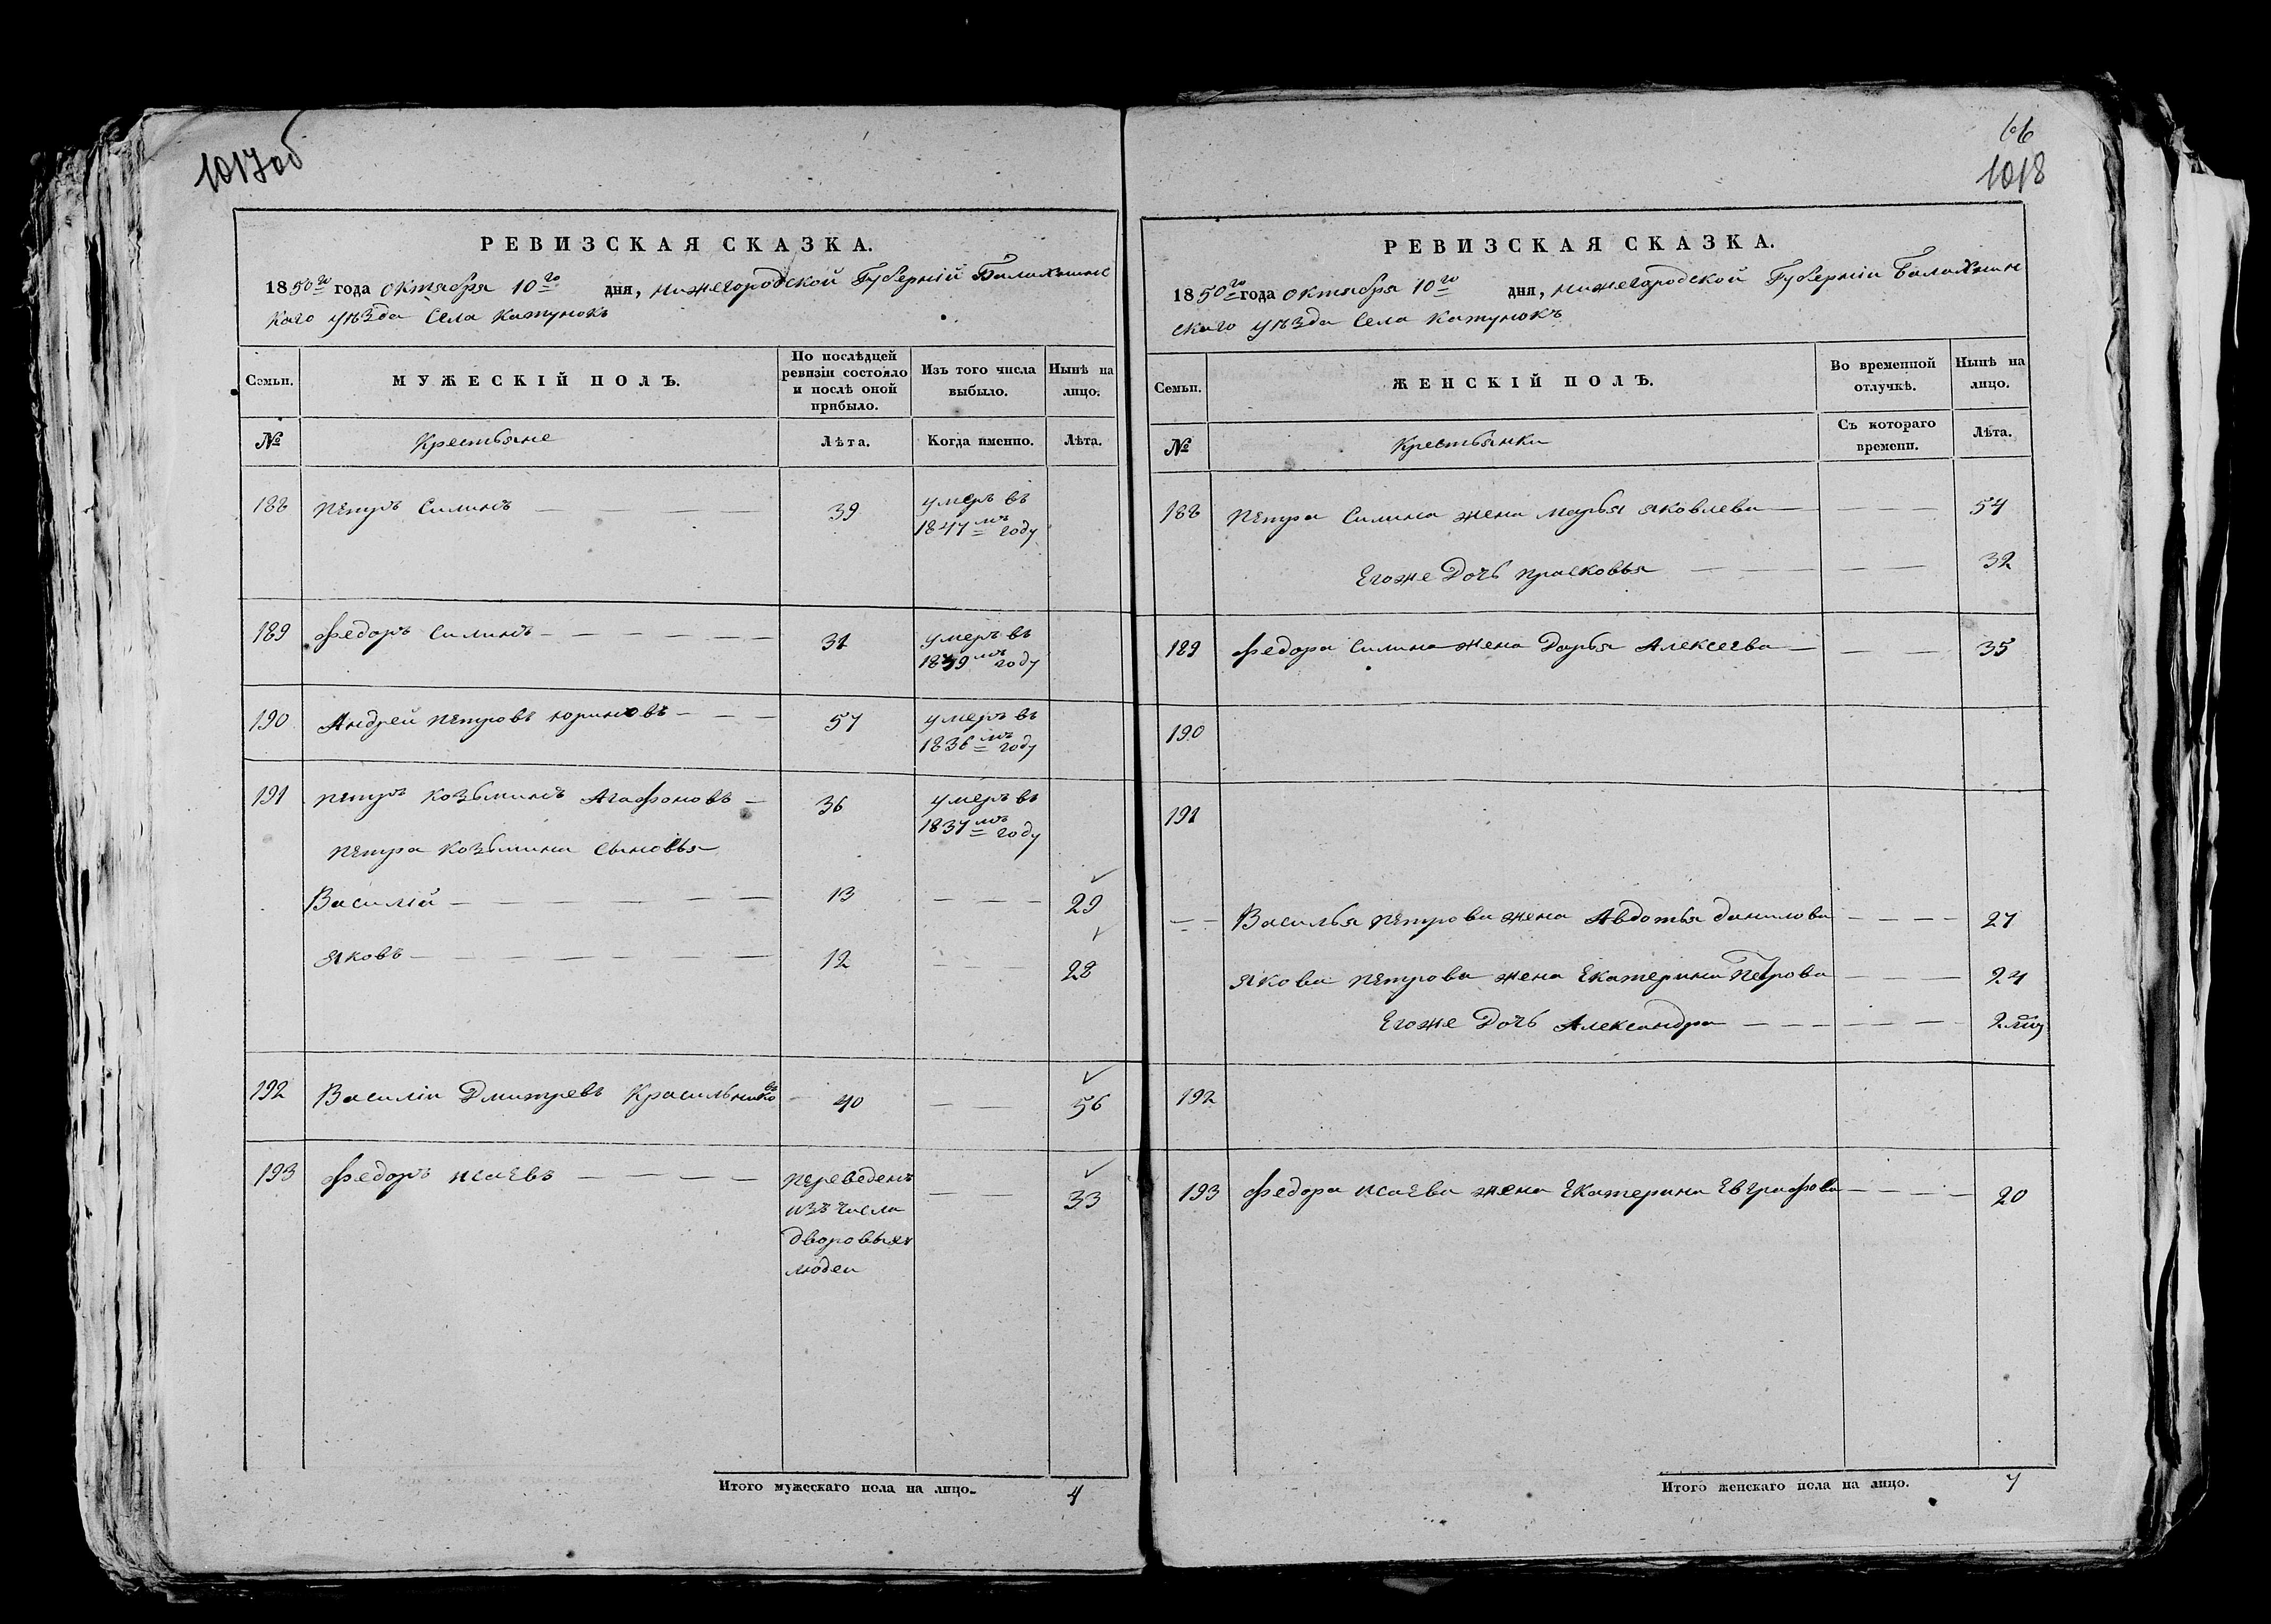 1017об
РЕВИЗСКАЯ СКАЗКА.
1850го года октября 10го дня, Нижегородской Губерній Балахнинс
каго уѣзда Села Катунокъ
Семьи. МУЖЕСКІЙ ПОЛЪ. По послѣдней ревизіи состояло и послѣ оной прибыло. Изъ того числа выбыло. Нынѣ на лицо.
№ Крестьяне Лѣта. Когда именно. Лѣта.
188 Петръ Силинъ 39 умеръ въ
1847мъ году
189 Федоръ Силинъ 31 умеръ въ
1849мъ году
190 Андрей Петровъ Юриновъ 57 умеръ въ
1836мъ году
191 Петръ Козьминъ Агафоновъ 36 умеръ въ
1837мъ году
Петра Козьмина сыновья
Василій 13 29
Яковъ 12 28
192 Василіи Дмитревъ Красильниковъ 40 56
193 Федоръ Исаевъ переведенъ 33
изъ числа
дворовыхъ
людеи
Итого мужескаго пола на лицо. 4
66
1018
РЕВИЗСКАЯ СКАЗКА.
1850го года октября 10го дня, Нижегородской Губерніи Балахнин
скаго уѣзда Села Катунокъ
Семьи. ЖЕНСКІЙ ПОЛЪ. Во временной отлучкѣ. Нынѣ на лицо.
№ Крестьянки Съ котораго времени. Лѣта.
188 Петра Силина жена Марья Яковлева 54
Егоже Дочь Прасковья 32
189 Федора Силина жена Дарья Алексеева 35
190
191
Василья Петрова жена Авдотья Данилова 27
Якова Петрова жена Екатерина Петрова 24
Егоже Дочь Александра 2
192
193 Федора Исаева жена Екатерина Евграфова 20
Итого женскаго пола на лицо. 7